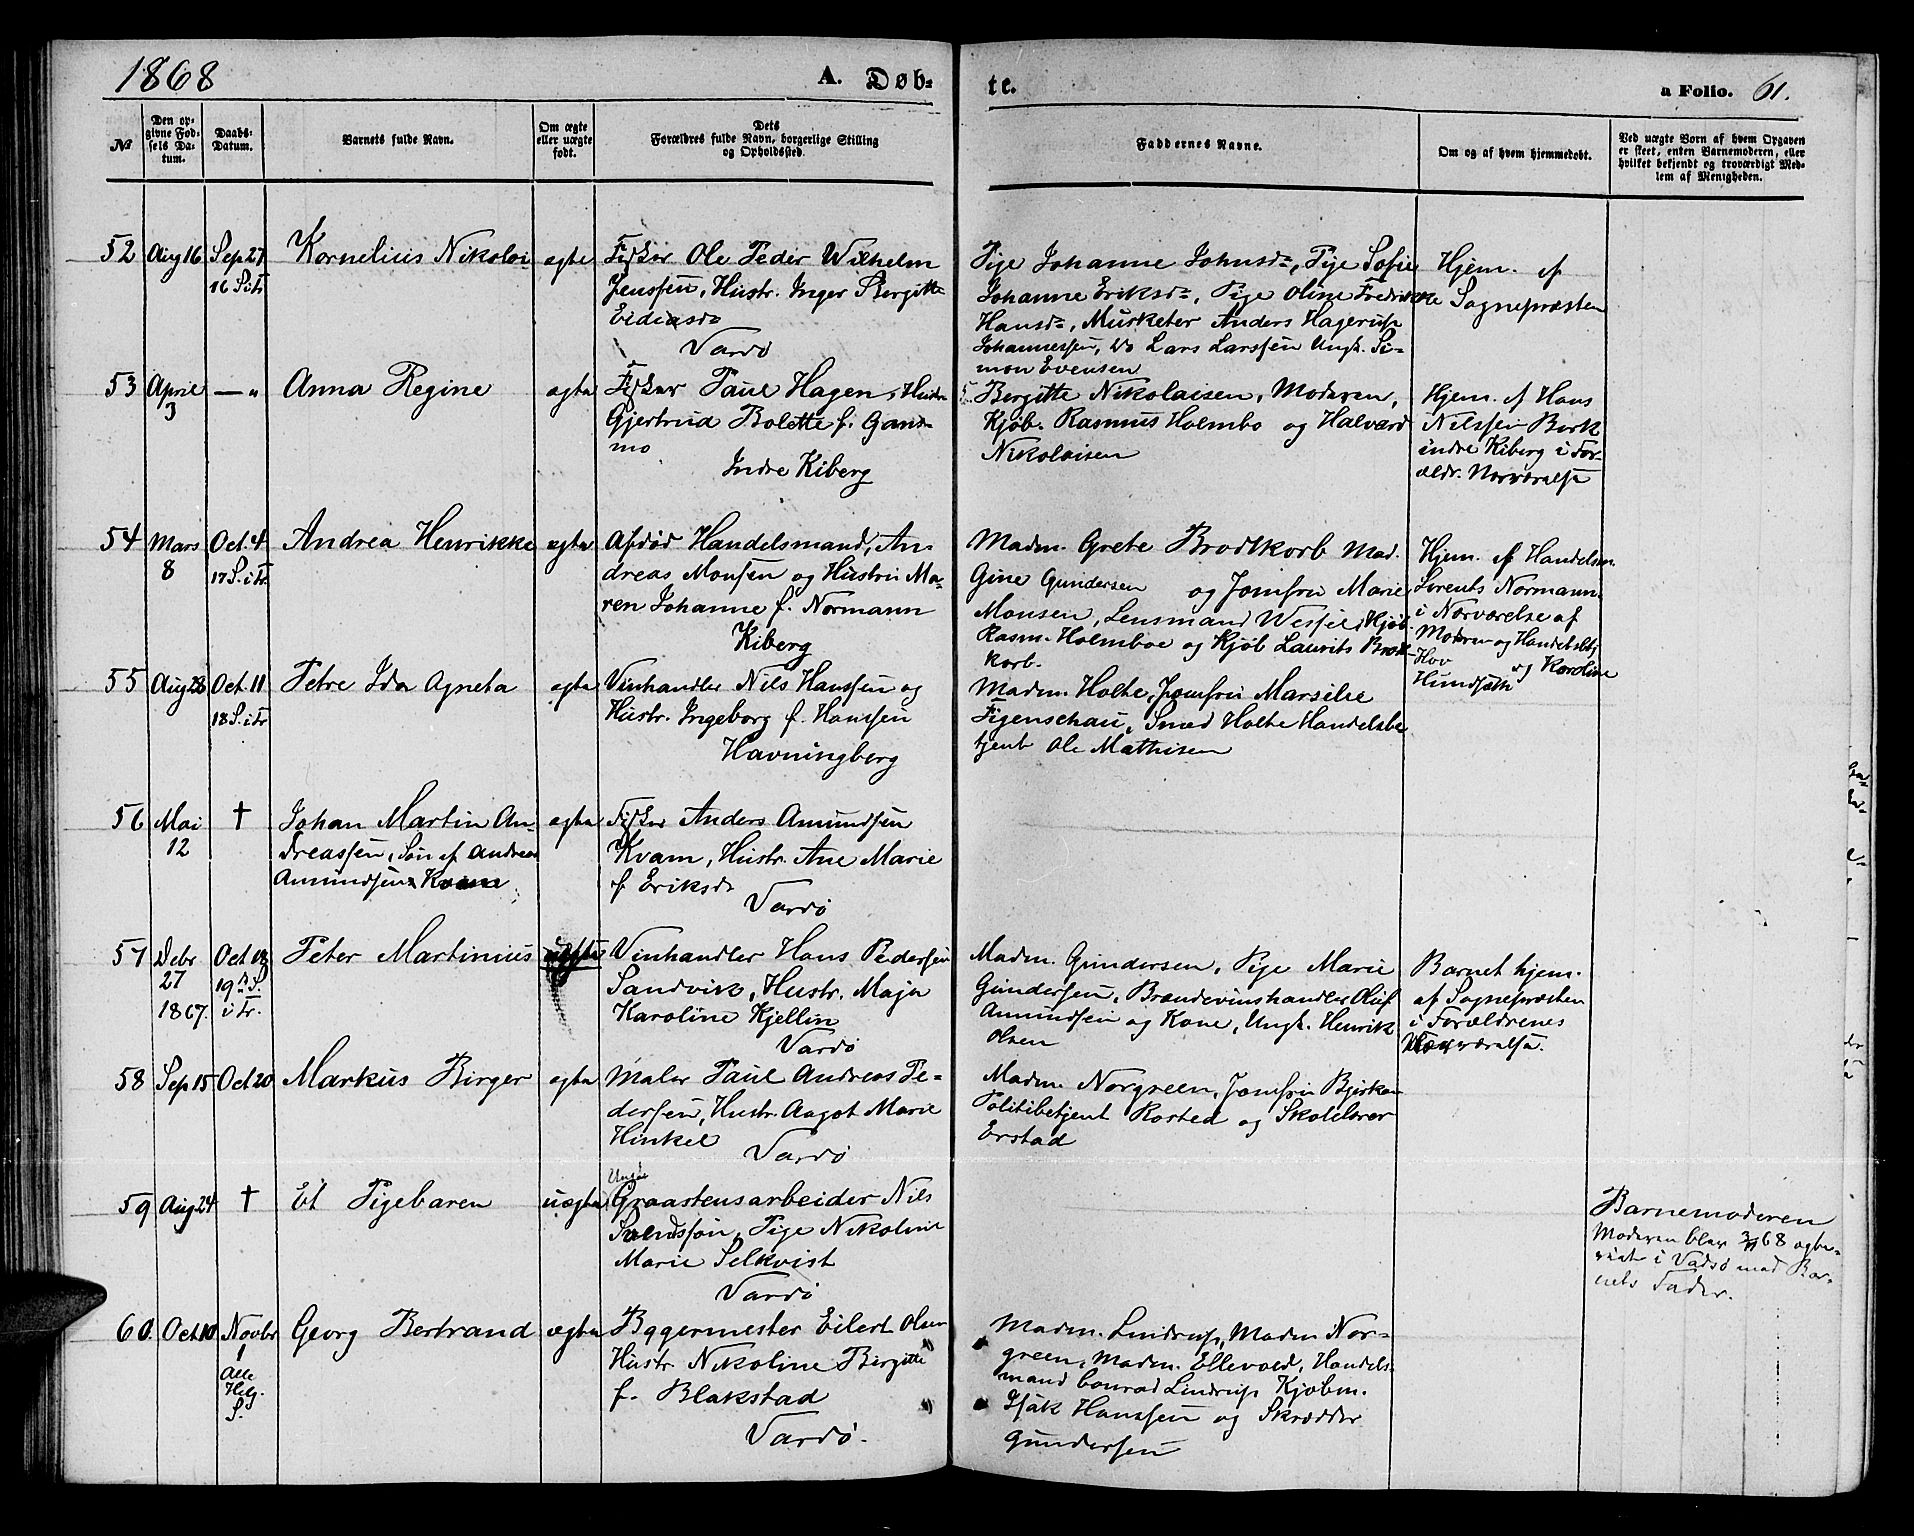 1868
A. Døb-
te.
a Folio. 61.
No
Den op-
givne Fød-
sels Da-
tum.
Daabs-
Datum.
Barnets fulde Navn.
Om ægte
eller uægte
født.
Dets
Forældres fulde Navn, borgerlige Stilling
og Opholdssted.
Faddernes Navne.
Om og af hvem hjemmedøbt.
Ved uægte Børn af hvem Opgaven
er skeet, enten Barnemoderen, eller
hvilket bekjendt og troværdigt Med-
lem af Menigheden.
52 Aug 16 Sep 27
16 S i Tr
Kornelius Nikolai
ægte
Fisker Ole Peder Wilhelm
Jenssen, Hustr. Inger Bergitte
Vardø
Pige Johanne Johnsdr, Pige Sofie
Johanne Eriksdr, Pige Oline Fredrikke
Hansdr, Musketer Anders Hagerup
Johannessen, do Lars Larssen Ungk. Si-
mon Evensen
Hjem. af
Sognepræsten
53 April
3
— "
Anna Regine
ægte
Fisker Paul Hagen, Hustr
Gjertrud Bolette f. Gans-
mo
Indre Kiberg
Bergitte Nikolaisen, Moderen,
Kjøb. Rasmus Holmbo og Halvard
Nikolaisen
Hjem. af Hans
Nilssen Bork
indre Kiberg i For-
ældr. Nærværelse
54 Mars
8
Oct. 4
17 S. i Tr
Andrea Henrikke
ægte
Afdød Handelsmand, An-
dreas Monsen og Hustru Ma-
ren Johanne f. Normann
Kiberg
Madm. Grete Brodtkorb Mad.
Gine Gundersen og Jomfru Marie
Monsen, Lensmand Wessel, Kjøb.
Rasm. Holmboe og Kjøb Laurits Brodt-
korb.
Hjem. af Handelsm.
Lorents Normann
i Nærværelse af
Moderen og Handelsbtj
Hov og Karoline
Hundsæth
55 Aug 28 Oct. 11
18 S. i Tr
Petre Ida Agneta
ægte
Vinhandler Nils Hanssen og
Hustr. Ingeborg f. Hanssen
Havningberg
Madm. Holte, Jomfru Marselie
Figenschau, Smed Holte Handelsbe
tjent Ole Mathisen
56 Mai
12
†
Johan Martin An-
dreassen, Søn af Andreas
Amundsen Kvam
ægte
Fisker Anders Amundsen
Kvam, Hustr. Ane Marie
f. Eriksdr
Vardø
57 Debr
27
1867.
Oct 18
19de S.
i Tr.
Peter Martinius
Vinhandler Hans Pedersen
Sandvik, Hustr. Maja
Karoline Kjellin
Vardø
Madm. Gundersen, Pige Marie
Gundersen, Brændevinshandler Oluf
Amundsen og Kone, Ungk. Henrik
Olsen
Barnet hjem.
af Sognepræsten
i Forældrenes
Nærværelse.
58 Sep 15 Oct 20
Markus Birger
ægte
Maler Paul Andreas Pe-
dersen, Hustr. Aagot Marie
Hinkel
Vardø
Madm. Norgreen, Jomfru Bjerkan
Politibetjent Rosted og Skolelærer
Erstad
59 Aug 24 †
Et Pigebaren
uægte
Ungk
Graastensarbeider Nils
Svendsson, Pige Nikoline
Marie Selkvist
Vardø
Barnemoderen
Moderen blev 68 ægte-
viet i Vadsø med Bar-
nets Fader.
60. Oct 10 Novbr
1
Alle
Helg.
S.
Georg Bertrand
ægte
Byggermester Eilert Olsen
Hustr Nikoline Birgitte
f. Blakstad
Vardø.
Madm. Lindrup, Madm Nor-
green, Madm. Ellevold, Handels-
mand Conrad Lindrup Kjøbm.
Isak Hanssen og Skrædder
Gundersen